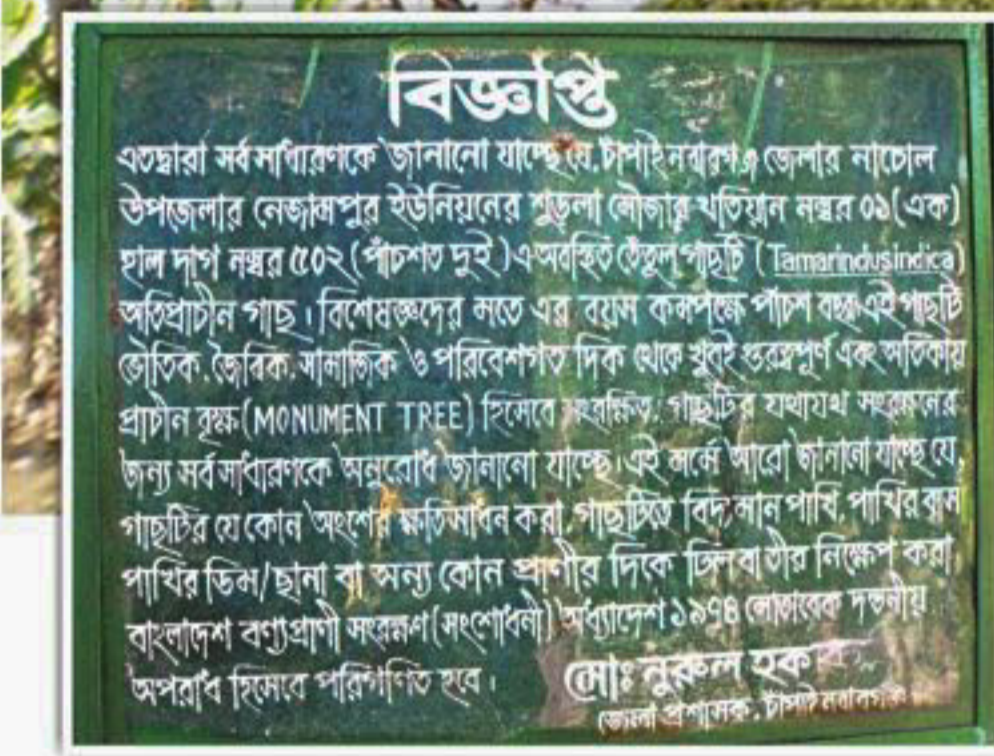 বিজ্ঞপ্তি
এতদ্বারা সর্বসাধারণকে জানানো যাচ্ছে যে, চাঁপাইনবাবগঞ্জ জেলার নাচোল
উপজেলার নেজামপুর ইউনিয়নের শুড়লা মৌজার খতিয়ান নম্বর ০১(এক)
হাল দাগ নম্বর ৫০২(পাঁচশত দুই)এ অবস্থিত তেঁতুল গাছটি (Tamarindusindica)
অতিপ্রাচীন গাছ। বিশেষজ্ঞদের মতে এর বয়স কমপক্ষে পাঁচশ বছর এই গাছটি
ভৌতিক, জৈবিক, সামাজিক ও পরিবেশগত দিক থেকে খুবই গুরত্বপুর্ণ এবং অতিকায়
প্রাচীন বৃক্ষ(MONUMENT TREE) হিসেবে সংরক্ষিত, গাছটির যথাযথ সংরক্ষনের
জন্য সর্বসাধারণকে অনুরোধ জানানো যাচ্ছে। এই মর্মে আরো জানানো যাচ্ছে যে,
গাছটির যে কোন অংশের ক্ষতিসাধন করা, গাছটিতে বিদ্যমান পাখি, পাখির বাসা
পাখির ডিম/ছানা বা অন্য কোন প্রাণীর দিকে ঢিল বা তীর নিক্ষেপ করা
বাংলাদেশ বণ্যপ্রাণী সংরক্ষণ(সংশোধনী) অধ্যাদেশ ১৯৭৪ মোতাবেক দন্ডনীয়
অপরাধ হিসেবে পরিগণিত হবে।
মোঃ নুরুল হক
জেলা প্রশাসক, চাঁপাইনবাবগঞ্জ